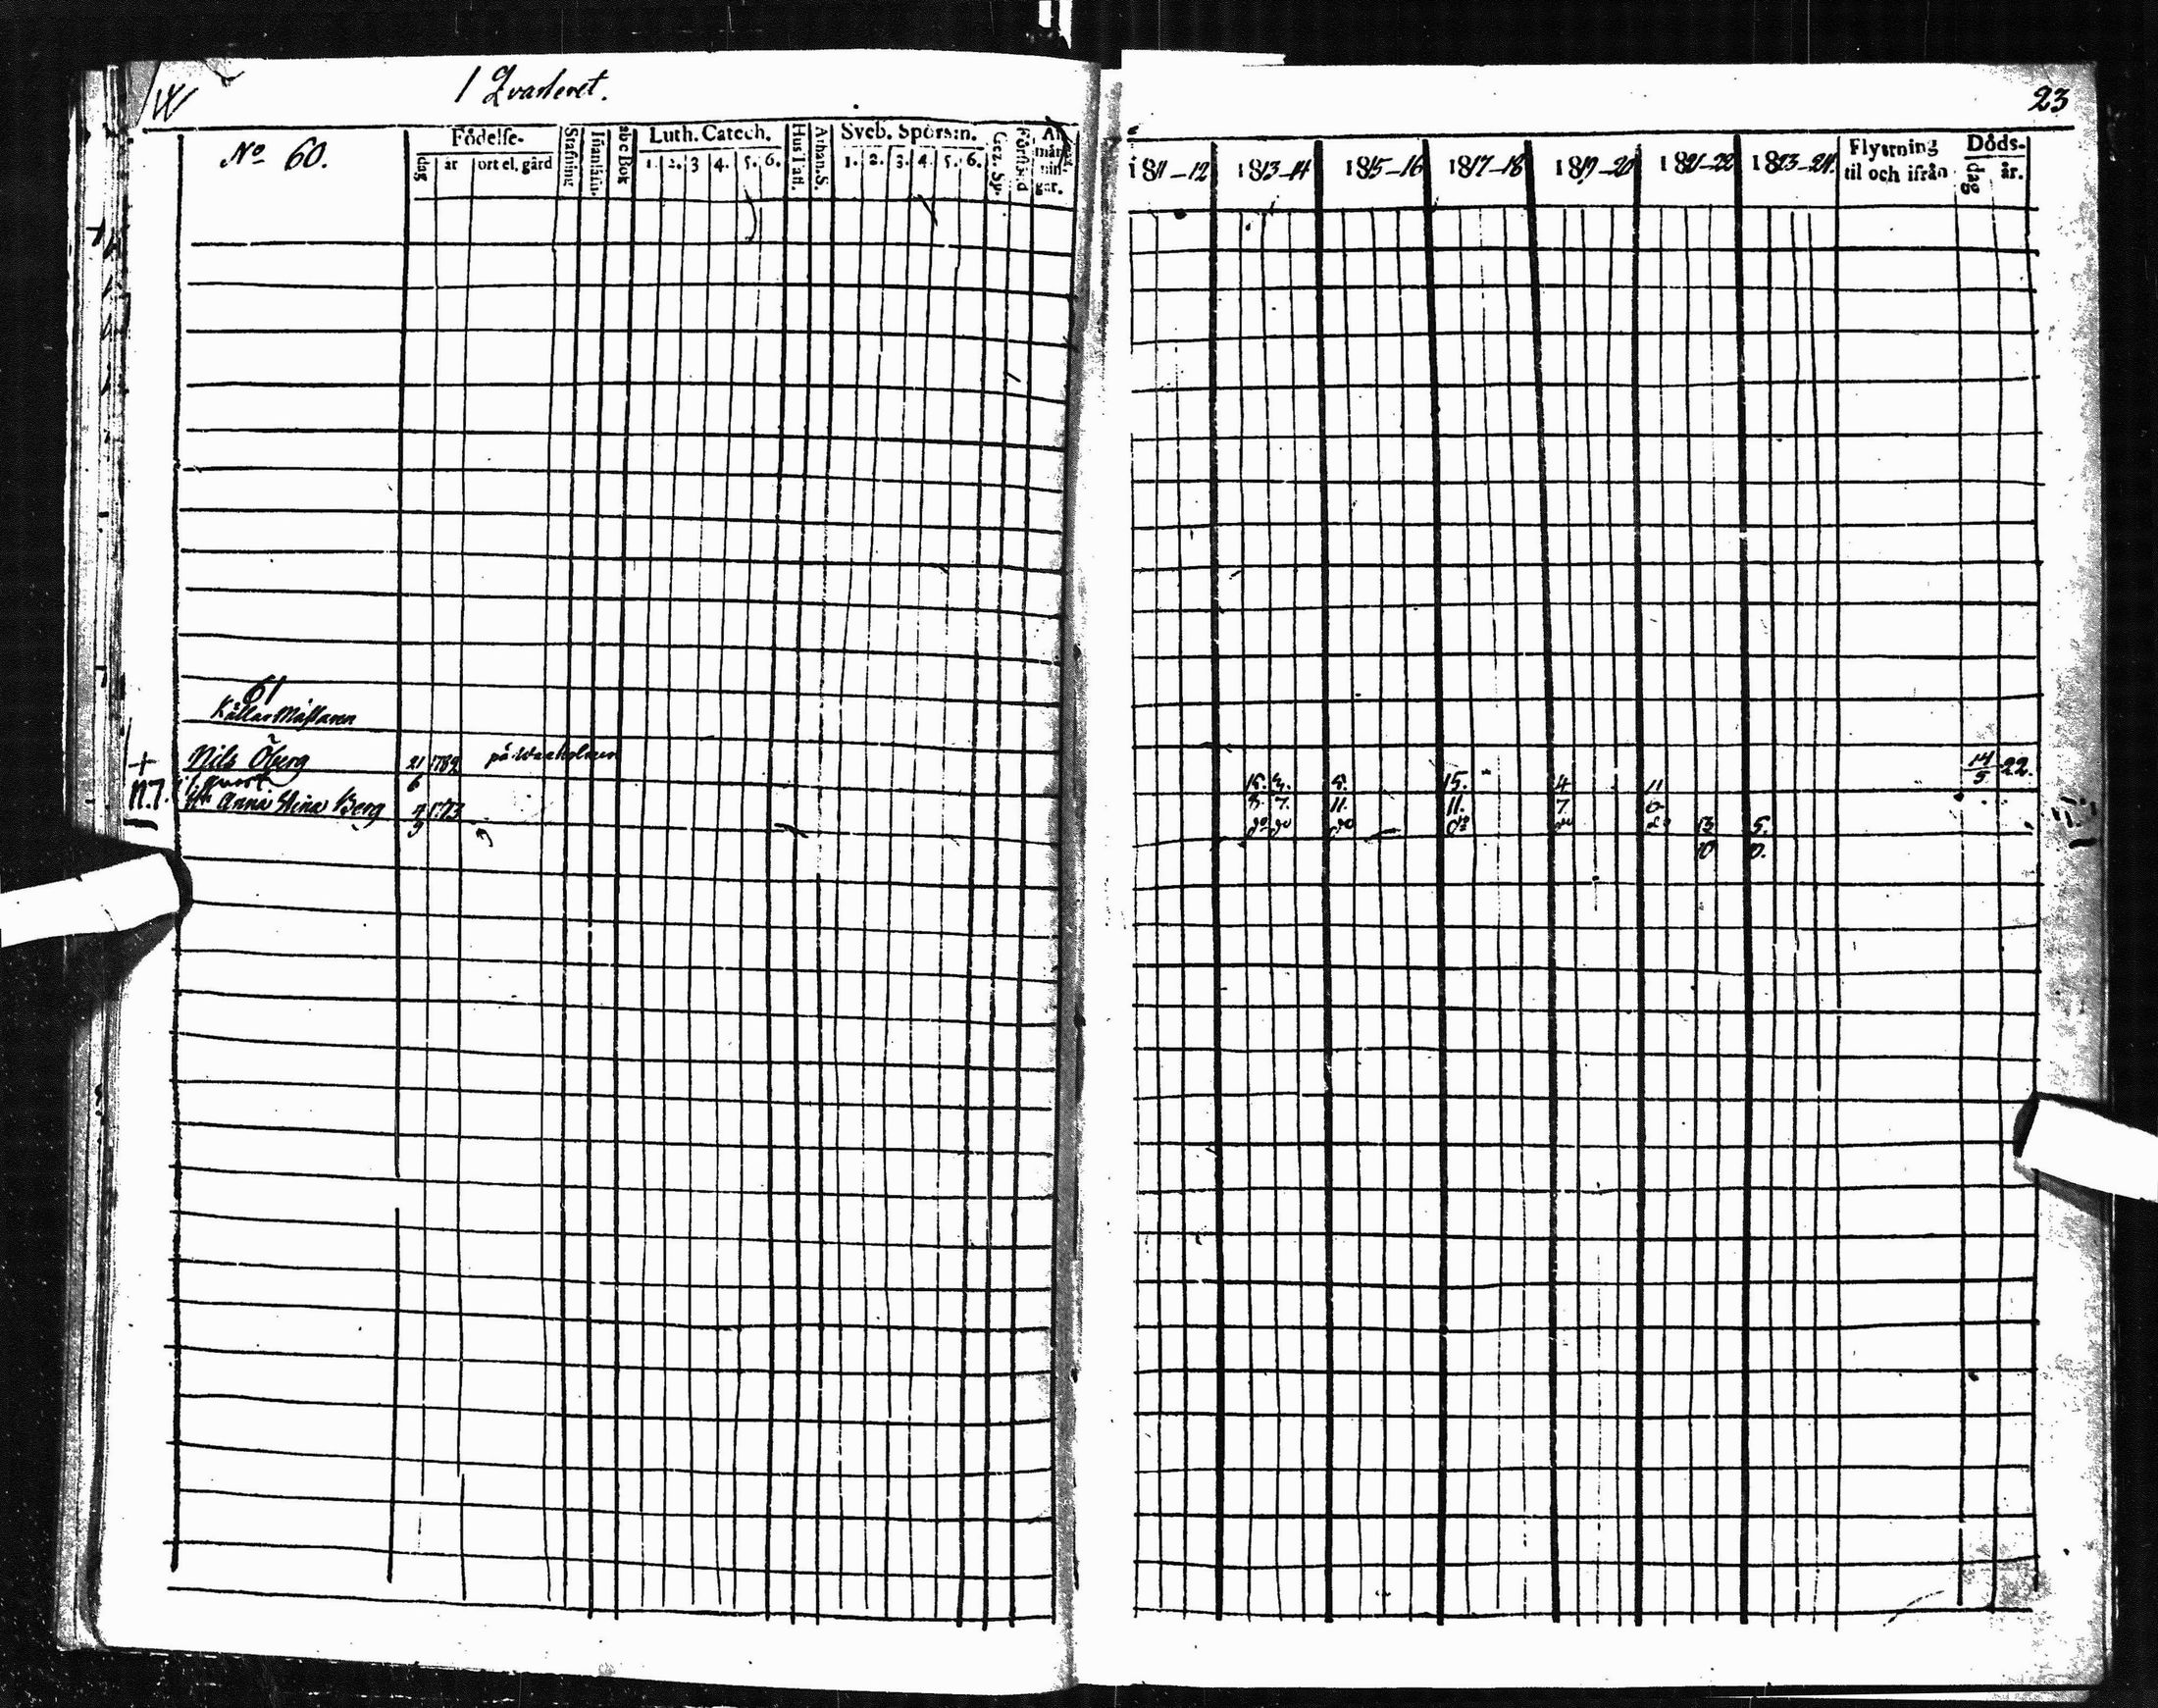 1 Qvarteret.
23
No 60.
Födelse-
dag år ort el. gård
Stafning
Innanläsn.
abc Bok
Luth. Catech.
1. 2. 3 4. 5. 6.
Hus Tafl.
Athan. S.
Sveb. Spörsm.
1. 2. 3. 4. 5. 6.
Gez. Sp.
Förstånd
1811-12 1813-14 1815-16 1817-18 1819-20 1821-22 1823-24.
Flyttning
til och ifrån
Döds-
dag år.
61
Källar Mästaren
+ Nils Öberg 21/6 1782 på Waxholmen 14/5 22.
15. 5. 15. 4 11
N.T. Anna Stina Berg 1773
7. 11. 11. 7 6
do do do do do do 13 5.
10 10.